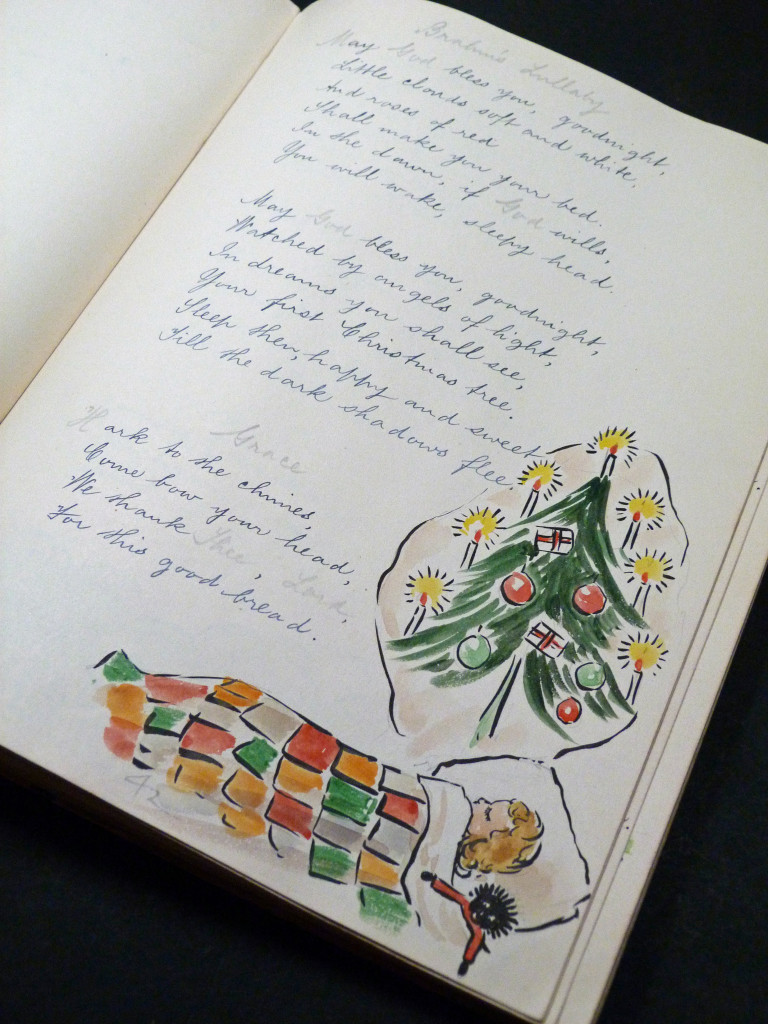 Brahm's Lullaby
May God bless you, goodnight,
Little clouds soft and white,
And roses of red
Shall make you your bed.
In the dawn, if God wills,
You will wake, sleepy head.
May God bless you, goodnight,
Watched by angels of light,
In dreams you shall see,
Your first Christmas tree.
Sleep then, happy and sweet
Till the dark shadows flee.
Grace
Hark to the chimes,
Come bow your head,
We thank Thee, Lord,
For this good bread.
42